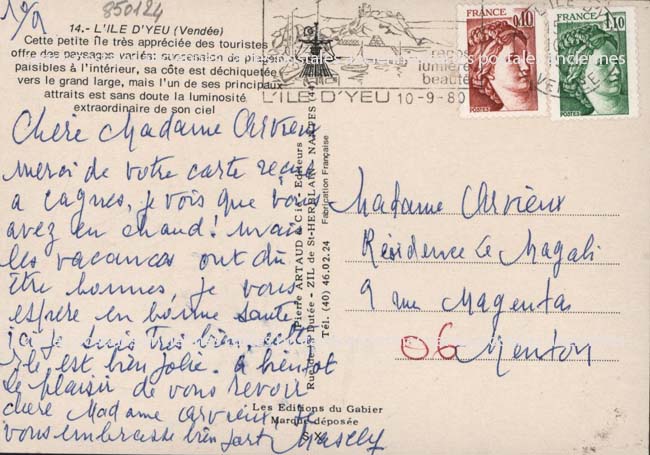 10/9
850124
14.- L'ILE D'YEU (Vendée)
Cette petite île très appréciée des touristes
offre des paysages variés: succession de plaines
paisibles à l'intérieur, sa côte est déchiquetée
vers le grand large, mais l'un de ses principaux
attraits est sans doute la luminosité
extraordinaire de son ciel
Chère Madame Arvieux
merci de votre carte reçue
a Cagnes, je vois que vous
avez eu chaud! mais
les vacances ont dû
être bonnes, je vous
espère en bonne santé
ici je suis très bien, cette
île est bien jolie. a bientôt
le plaisir de vous revoir
chère Madame Arvieux je
vous embrasse bien fort
Pierre ARTAUD & Cie - Editeurs
Rue de la Dutée - ZIL de St-HERBLAIN NANTES (44)
Tél. (40) 46.02.24 Fabrication Française
repos
lumière
beauté
L'ILE D'YEU 10-9-80
FRANCE
0,10
POSTES
FRANCE
1,10
POSTES
Madame Arvieux
Résidence Le Magali
9 rue Magenta
06 Menton
Les Editions du Gabier
Marque déposée